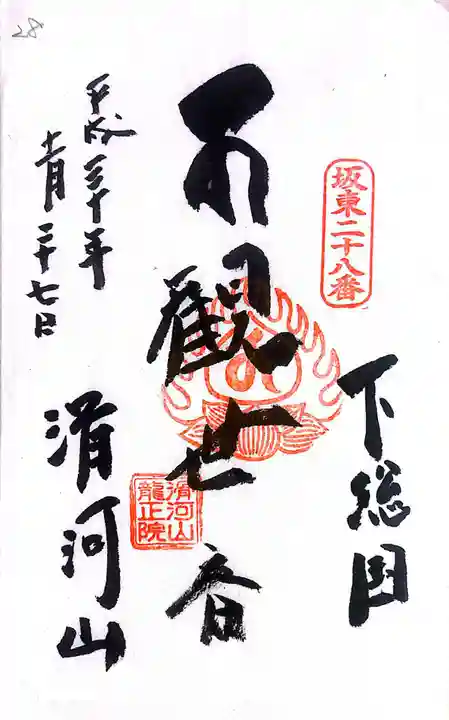 坂東二十八番
下総国
觀世音
滑河山
龍正院
平成三十年
十一月二十七日
滑河山
28